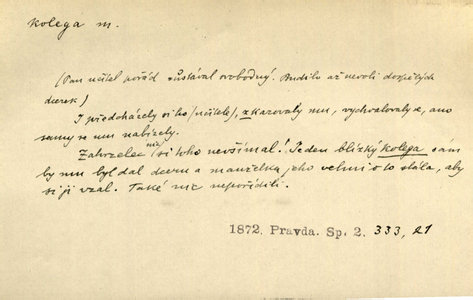 kolega m.
(Pan učitel pořád zůstával svobodný. Budilo až nevoli dospělých
dcerek)
I předcházely si ho (učitele), vychvalovaly se, ano
samy se mu nabízely.
Zahrzelec nic si toho nevšímal! Jeden blízký kolega sám
by mu byl dal dceru a manželka jeho velmi o to stála, aby
si ji vzal. Také nic nepořídili.
1872. Pravda. Sp. 2. 333, 21